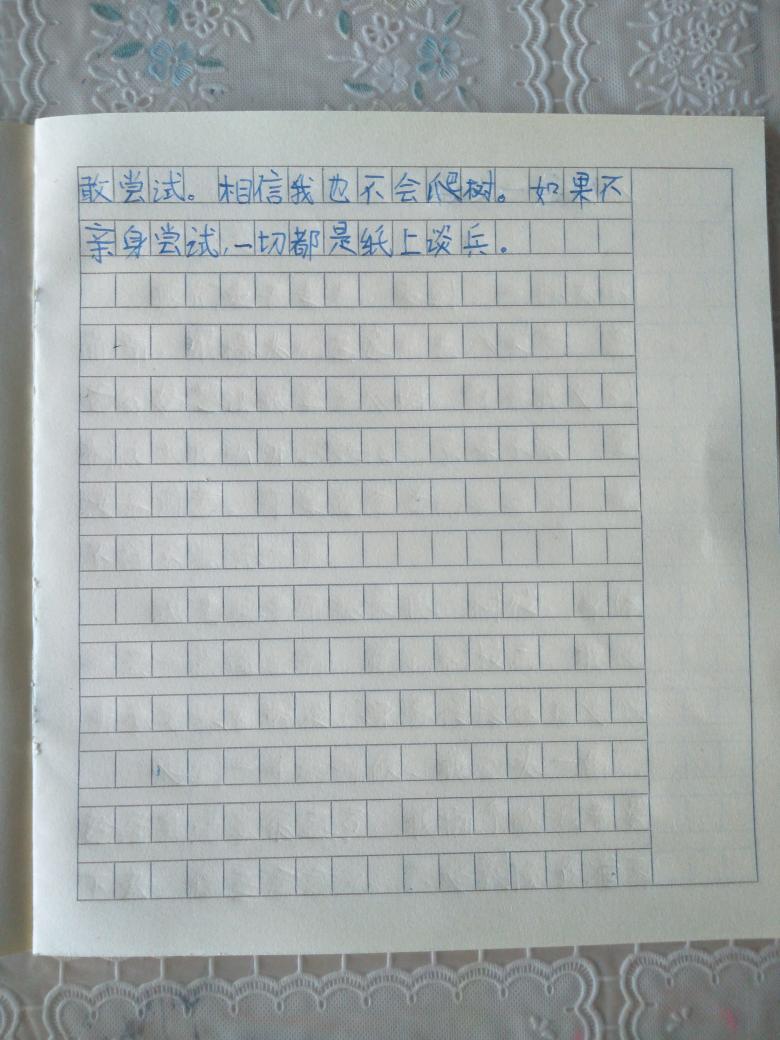 敢尝试。相信我也不会爬树。如果不
亲身尝试,一切都是纸上谈兵。